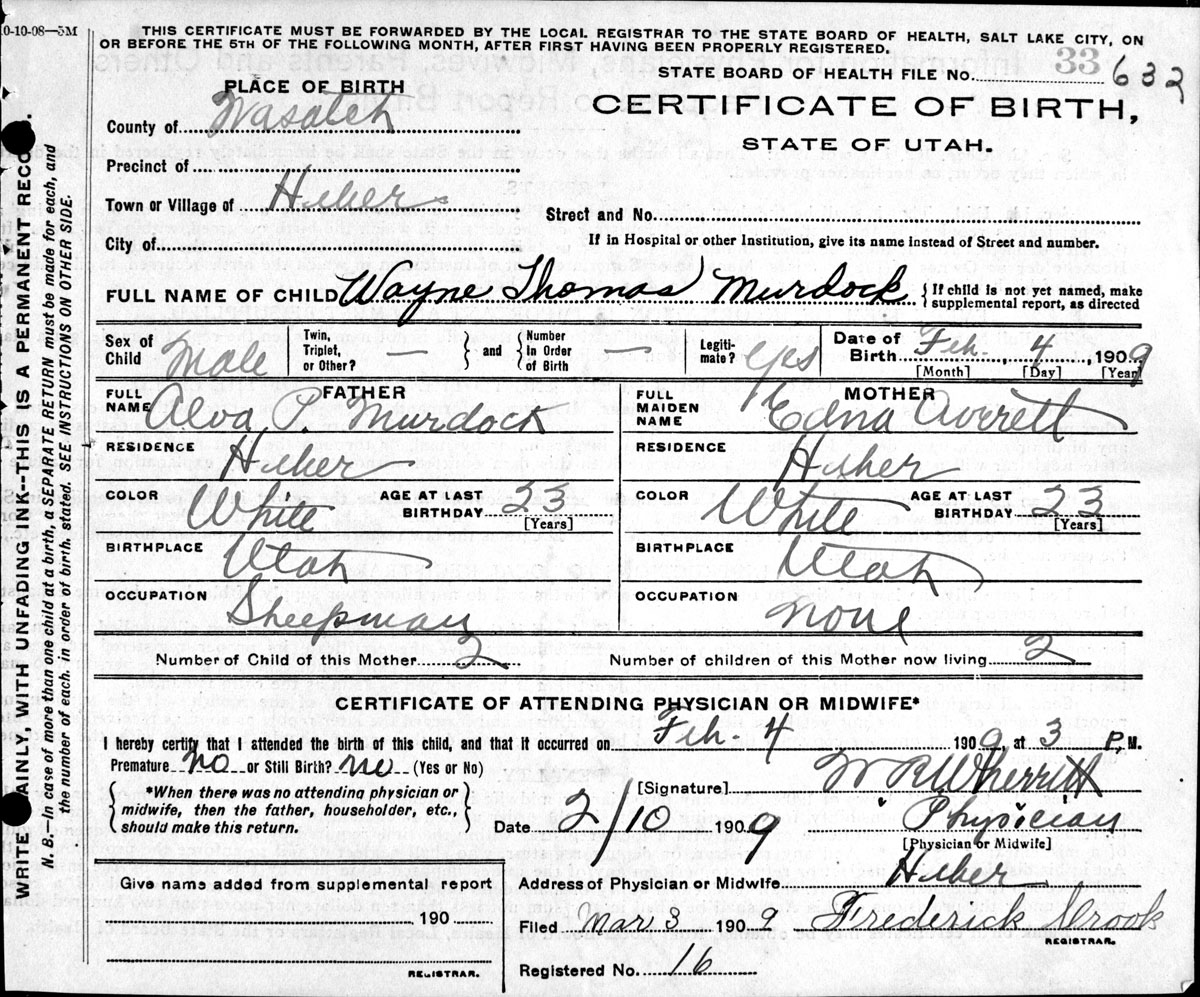 10-10-08—5M
THIS CERTIFICATE MUST BE FORWARDED BY THE LOCAL REGISTRAR TO THE STATE BOARD OF HEALTH, SALT LAKE CITY, ON
OR BEFORE THE 5TH OF THE FOLLOWING MONTH, AFTER FIRST HAVING BEEN PROPERLY REGISTERED.
33
STATE BOARD OF HEALTH FILE No. 632
PLACE OF BIRTH
CERTIFICATE OF BIRTH,
STATE OF UTAH.
County of Wasatch
Precinct of
Town or Village of Heber
Street and No.
City of
If in Hospital or other Institution, give its name instead of Street and number.
FULL NAME OF CHILD Wayne Thomas Murdock { If child is not yet named, make supplemental report, as directed
Sex of Child Male
Twin, Triplet, or Other? — } and { Number In Order of Birth —
Legitimate? Yes
Date of Birth Feb. 4 1909
[Month] [Day] [Year]
FATHER
FULL NAME Alva P. Murdock
RESIDENCE Heber
COLOR White AGE AT LAST BIRTHDAY 23 [Years]
BIRTHPLACE Utah
OCCUPATION Sheepman
MOTHER
FULL MAIDEN NAME Edna Averett
RESIDENCE Heber
COLOR White AGE AT LAST BIRTHDAY 23 [Years]
BIRTHPLACE Utah
OCCUPATION None
Number of Child of this Mother 2 Number of children of this Mother now living 2
CERTIFICATE OF ATTENDING PHYSICIAN OR MIDWIFE*
I hereby certify that I attended the birth of this child, and that it occurred on Feb. 4 1909, at 3 P. M.
Premature No or Still Birth? no (Yes or No)
{ *When there was no attending physician or
midwife, then the father, householder, etc.,
should make this return. }
[Signature] W R Wherritt
Date 2/10 1909 Physician
[Physician or Midwife]
Give name added from supplemental report
190
REGISTRAR.
Address of Physician or Midwife Heber
Filed Mar 3 1909 Frederick Crook
REGISTRAR.
Registered No. 16
WRITE PLAINLY, WITH UNFADING INK--THIS IS A PERMANENT RECORD.
N. B.—In case of more than one child at a birth, a SEPARATE RETURN must be made for each, and
the number of each, in order of birth, stated. SEE INSTRUCTIONS ON OTHER SIDE.